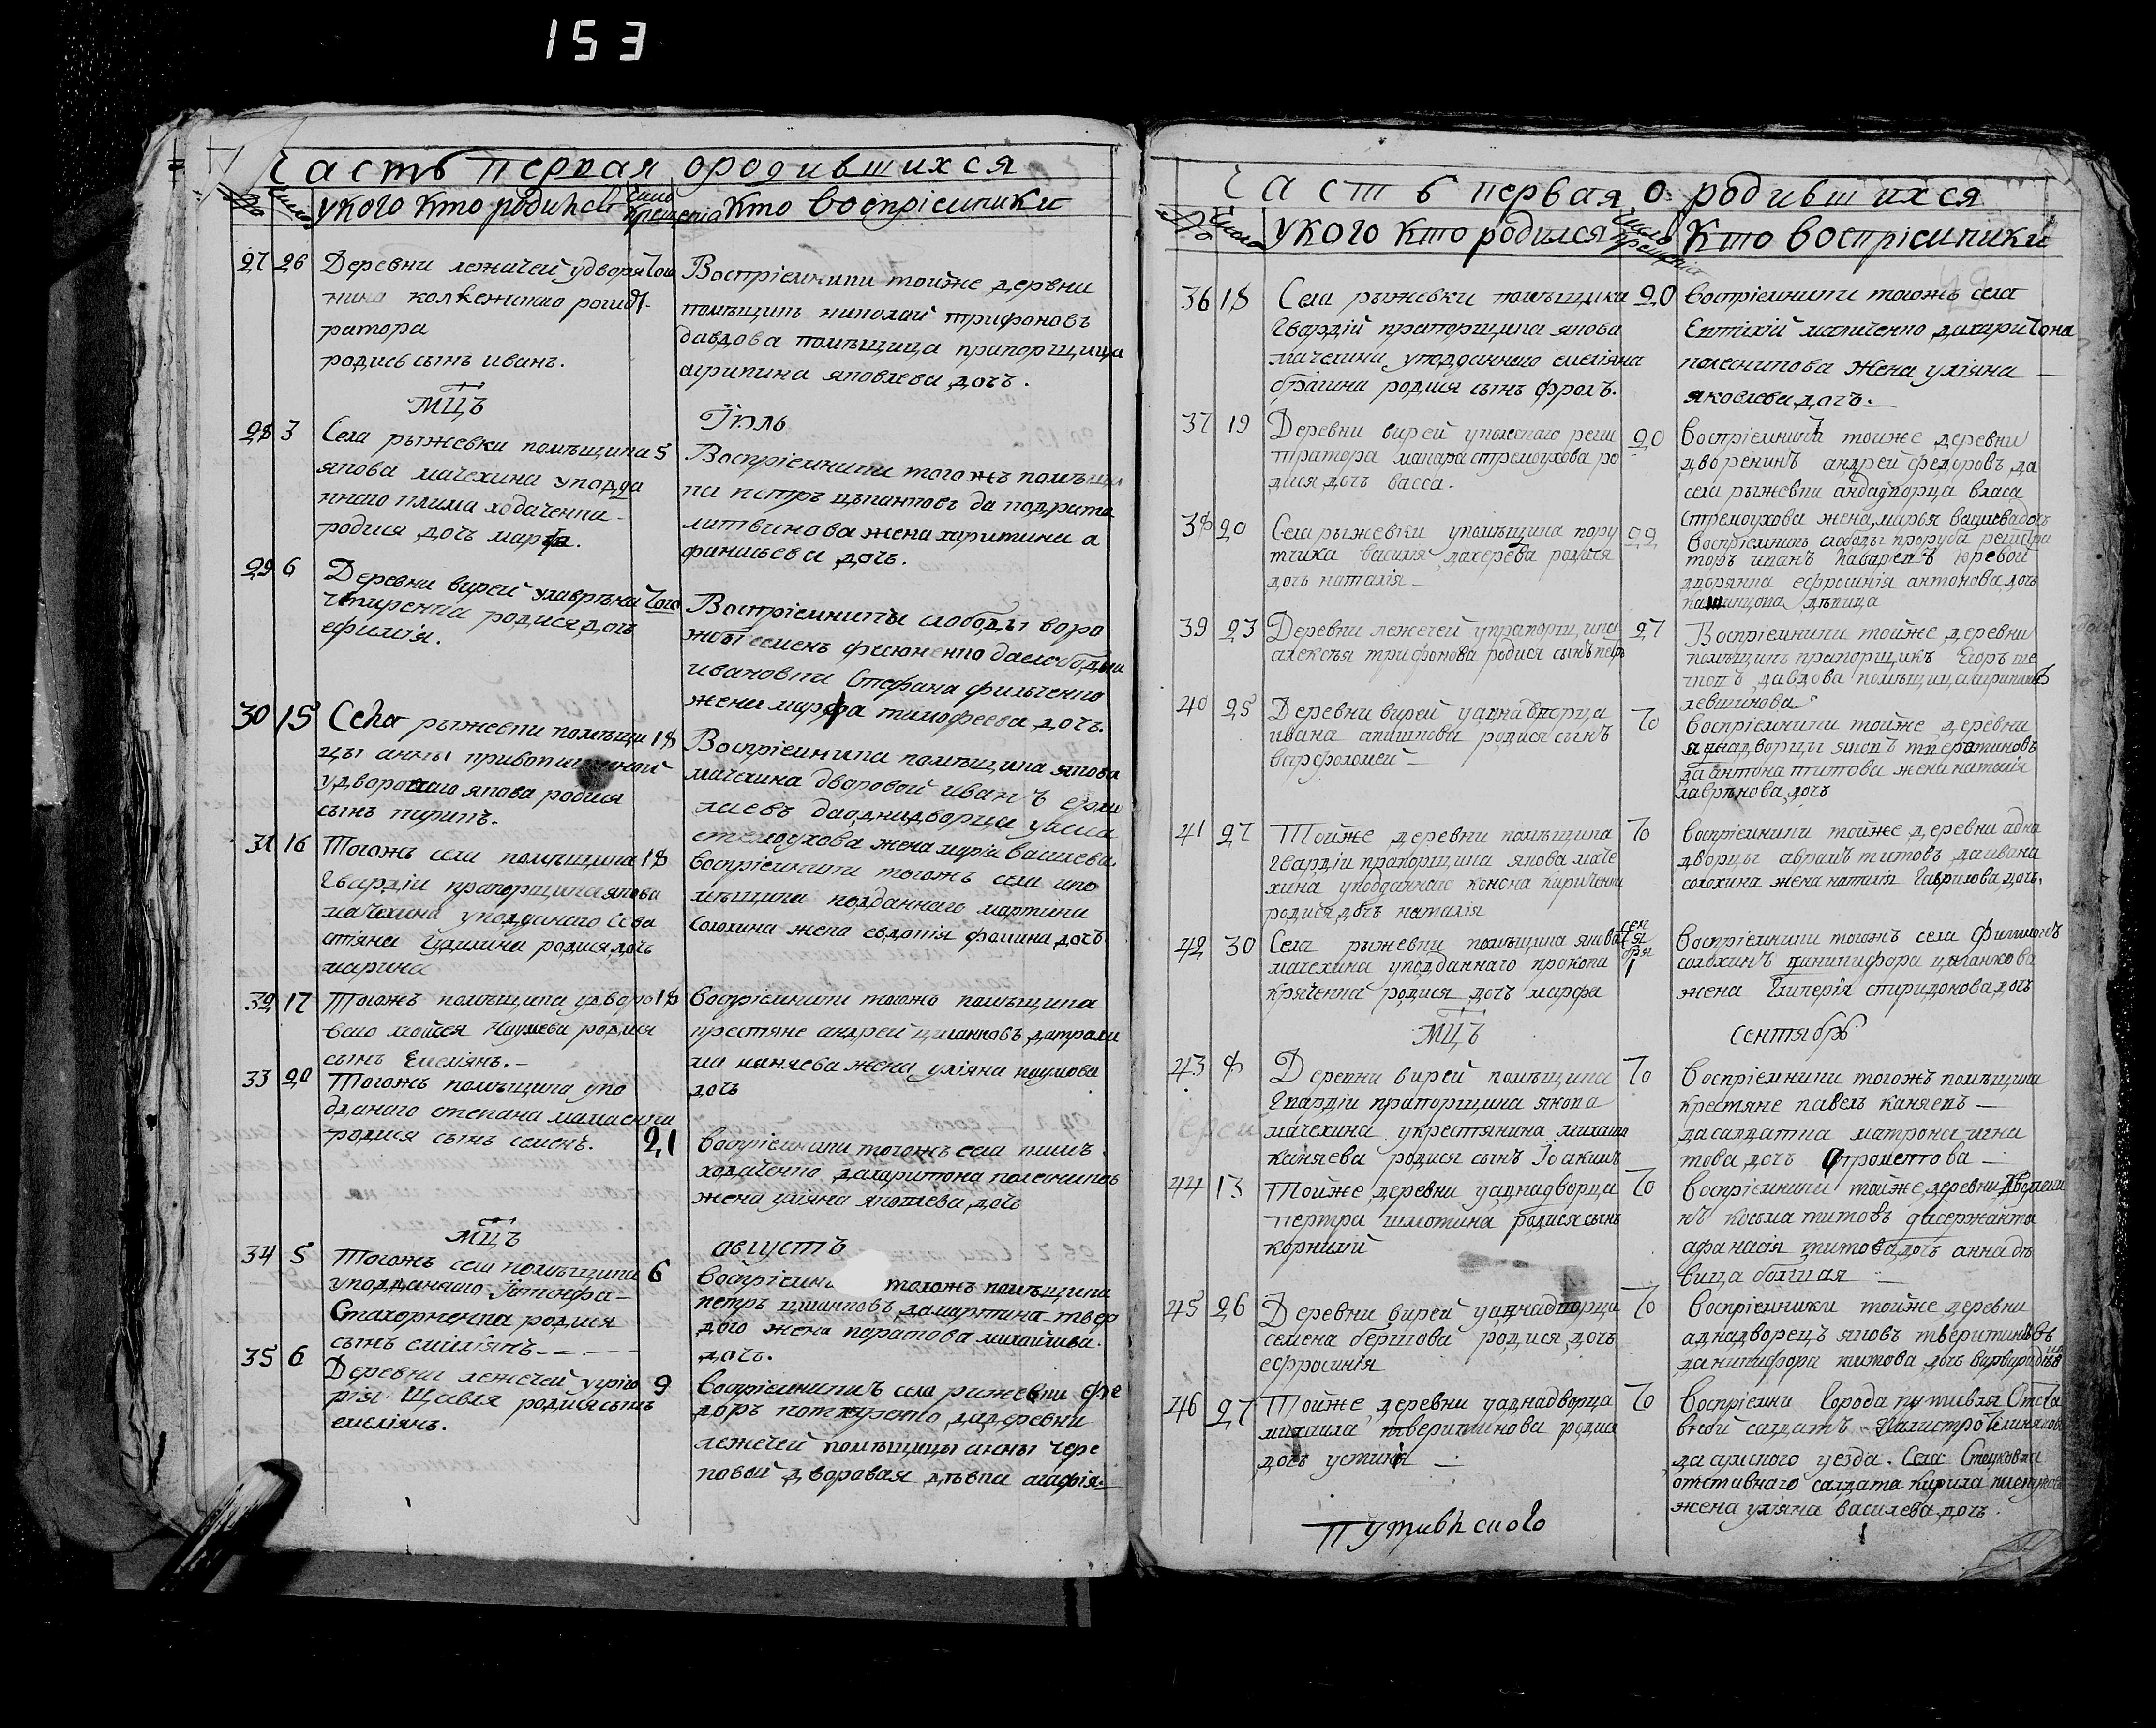 153
Часть первая ородившихся
№ Число укого кто родился Число крещенія кто воспріемники
27 26 Деревни лежачей удворя того
нина колѣжского регист-
ратора
родись сынъ иванъ.
Воспріемники тойже деревни
помѣщикъ николай трифоновъ
давдова помѣщица прапорщица
агрипина яковлева дочь.
МЦЪ Іюль
28 3 Села рыжевки помѣщика 5
якова мачехина уподда
ннаго клима ходаченка
родися дочь марфа.
Воспріемники тогожъ помѣщи
ка петръ цыганковъ да кодрата
литвинова жена харитина а
фанасьева дочь.
29 6 Деревни вирей улаврѣна того
родися дочь
ефимія.
Воспріемники слободы воро
жбы семенъ да слободы
ивановки Стефана фильченко
жена марфа тимофеева дочь.
30 15 Села рыжевки помѣщи 18
цы анны
удвороваго якова родися
сынъ кирикъ.
Воспріемники помѣщика якова
мачехина дворовой иванъ
да однодворца уласа
стремоухова жена марія василева
31 16 Тогожъ села помѣщика 18
Гвардіи прапорщика якова
мачехина уподданаго Сева
стіяна родися дочь
марина
воспріемники тогожъ села упо
мѣщика подданнаго мартина
солохина жена евдокія фомина дочь
32 17 Тогожъ помѣщика удворо 18
ваго мойсея Наумева родися
сынъ Емеліянъ.-
воспріемники тогожъ помѣщика
крестяне андрей цыганковъ датрафи
ма каняева жена уліяна наумова
дочь
33 20 Тогожъ помѣщика упо
дданаго степана
родися сынъ семенъ. 21
воспріемники тогожъ села климъ
ходаченко дахаритона колесников
жена уліяна яковлева дочь
МЦЪ августъ
34 5 Тогожъ села помѣщика 6
уподданнаго
родися
сынъ емиліянъ
тогожъ помѣщика
петръ цыганковъ дамартина твер
дого жена параскова михайлова
дочь.
35 6 Деревни лежечей угриго 9
рія Щавля родися сынъ
емеліянъ.
воспріемники села рыжевки фе
доръ дадеревни
лежечей помѣщицы анны чере
повой дворовая дѣвка агафія
Часть первая о родившихся
№ Число укого кто родился Число крещенія Кто воспріемники
36 18 Села рыжевки помѣщика 20
Гвардіи прапорщика якова
мачехина уподданнаго емеліяна
брагина родися сынъ фролъ.
воспріемники тогожъ села
дахаритона
колесникова жена уліяна
яковлева дочь.
37 19 Деревни вирей уколеского реги 20
стратора макара стремоухова ро
дися дочь васса.
воспріемники тойже деревни
дворенинъ андрей федоровъ да
села рыжевки андадворца власа
стремоухова жена марья васиева дочь
38 20 Села рыжевки упомѣщика пору 22
тчика василя дахерева родися
дочь наталія
воспріемникъ слободы проруба регистра
торъ юревой
дворянка ефросинія антонова дочь
дѣвица
39 23 Деревни лежечей упрапорщика 27
алексѣя трифонова родися сынъ
Воспріемники тойже деревни
помѣщикъ прапорщикъ Егоръ
давдова помѣщица
левшинова
40 25 Деревни вирей уаднадворца то
ивана родися сынъ
варфоломей
воспріемники тойже деревни
аднадворцы яковъ тверитиновъ
да антона титова жена наталія
лаврѣнова дочь
41 27 Тойже деревни помѣщика то
Гвардіи прапорщика якова маче
хина уподданнаго конона кириченка
родися дочь наталія
воспріемники тойже деревни адна
дворцы аврамъ титовъ даивана
солохина жена наталія Гаврилова дочь.
42 30 Села рыжевки помѣщика якова сентября 1
мачехина уподданнаго прокопа
кряченка родися дочь марфа
воспріемники тогожъ села филимонъ
солохинъ цыганкова
жена Гликерія спиридонова дочь
МЦЪ сентябрь
43 8 Деревни вирей помѣщика то
Гвардіи прапорщика якова
мачехина укрестянина михаила
каняева родися сынъ Іоакимъ
воспріемники тогожъ помѣщика
крестяне павелъ каняевъ
дасалдатка матрона игна
това дочь
44 13 Тойже деревни уаднадворца то
петра шлотина родися сынъ
корнилий
воспріемники тойже деревни дворени
нъ косьма титовъ дасержанта
афанасія титова дочь анна дѣ
вица болшая
45 26 Деревни вирей уаднадворца то
семена бершова родися дочь
ефросинія
воспріемники тойже деревни
аднадворецъ яковъ тверитиновъ
даникифора титова дочь варвара
46 27 Тойже деревни уаднадворца то
михаила тверитинова родися
дочь устинія
воспріемни города путивля Отста
вной салдатъ
дасумского уезда Села Стецковки
отставнаго салдата кирила
жена уліяна василева дочь.
Путивлского